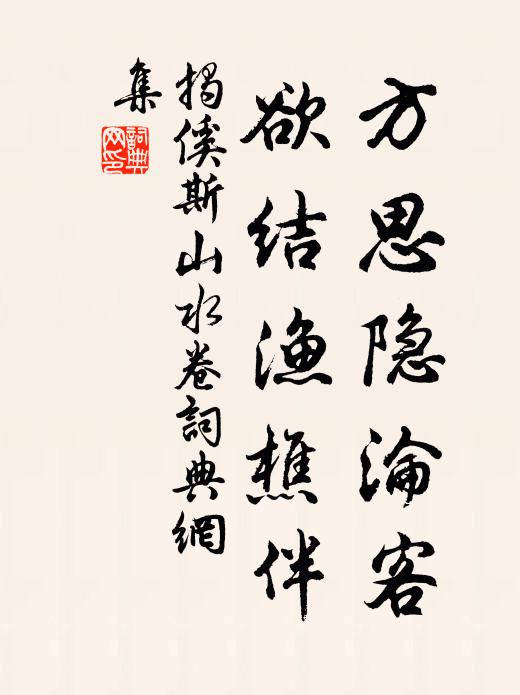 方思隐淪客
欲结渔樵伴
揭傒斯山水卷詞典網
集
詞典網印